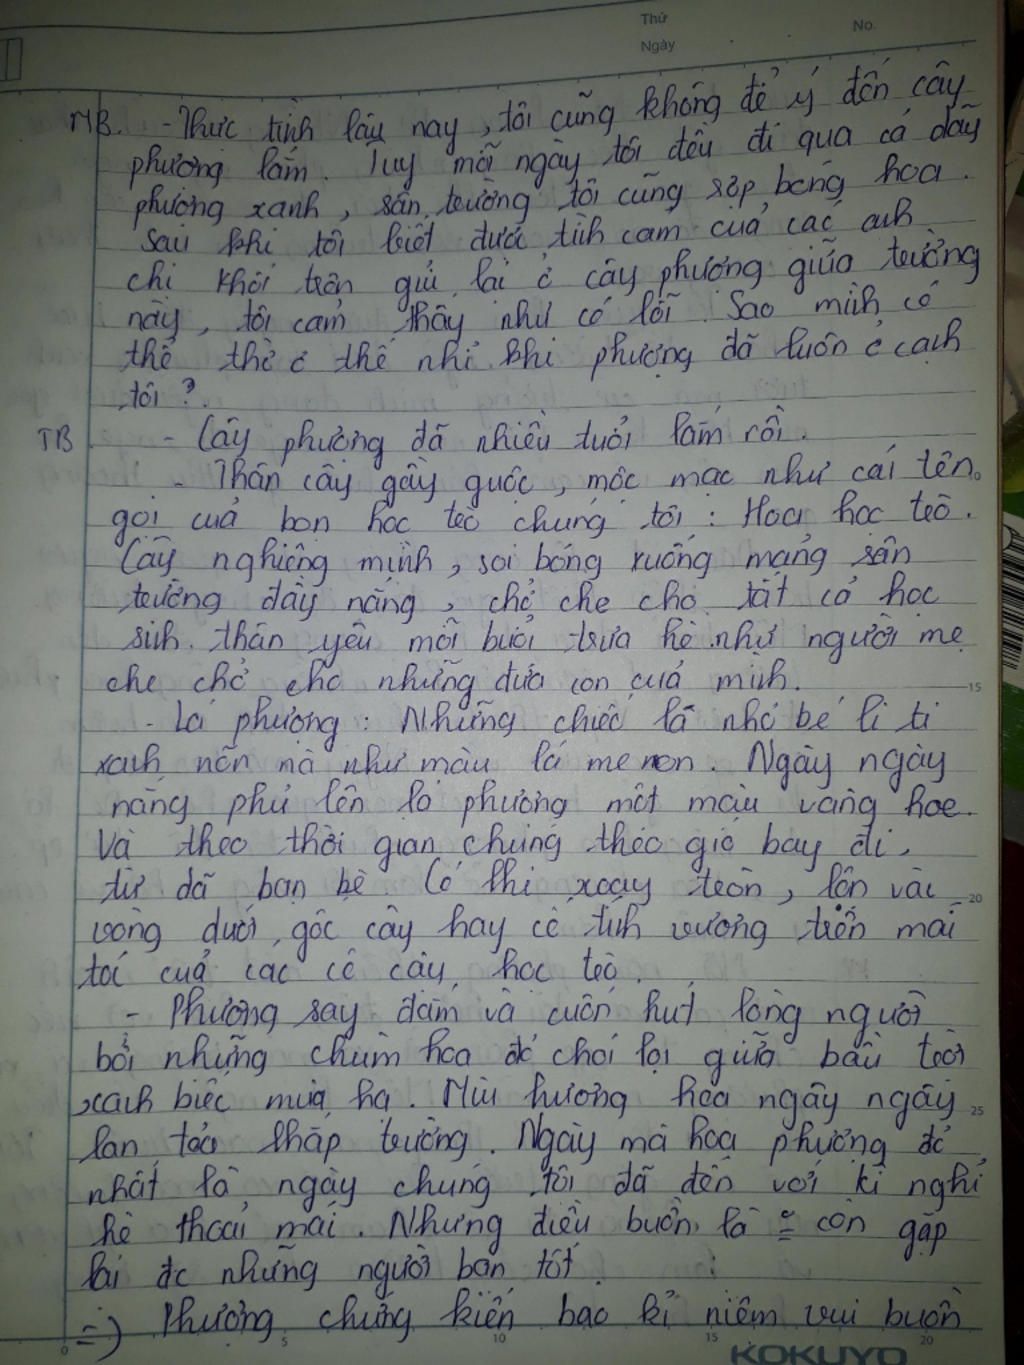 Thứ No.
Ngày
MB. - Thực tình lâu nay, tôi cũng không để ý đến cây
phượng lắm. Tuy mỗi ngày tôi đều đi qua cả dãy
phượng xanh, sân trường tôi cũng rợp bóng hoa.
Sau khi tôi biết được tình cảm của các anh
chị khối trên gửi lại ở cây phượng giữa trường
này, tôi cảm thấy như có lỗi. Sao mình có
thể thờ ơ thế nhỉ khi phượng đã luôn ở cạnh
tôi?.
TB - Cây phượng đã nhiều tuổi lắm rồi.
- Thân cây gầy guộc, mộc mạc như cái tên
gọi của bọn học trò chúng tôi: Hoa học trò.
Cây nghiêng mình, soi bóng xuống mảng sân
trường đầy nắng, chở che cho tất cả học
sinh thân yêu mỗi buổi trưa hè như người mẹ
che chở cho những đứa con của mình.
- Lá phượng: Những chiếc lá nhỏ bé li ti
xanh nõn nà như màu lá me non. Ngày ngày
nắng phủ lên lá phượng một màu vàng hoe.
Và theo thời gian chúng theo gió bay đi,
từ dã bạn bè Có khi xoay tròn, lộn vài
vòng dưới gốc cây hay cố tình vương trên mái
tóc của các cô cậu học trò
- Phượng say đắm và cuốn hút lòng người
bởi những chùm hoa đỏ chói lọi giữa bầu trời
xanh biếc mùa hạ. Mùi hương hoa ngây ngây
lan tỏa khắp trường. Ngày mà hoa phượng đỏ
nhất là ngày chúng tôi đã đến với kì nghỉ
hè thoải mái. Nhưng điều buồn là còn gặp
lại đc những người bạn tốt.
=) Phượng chứng kiến bao kỉ niệm vui buồn
KOKUYO